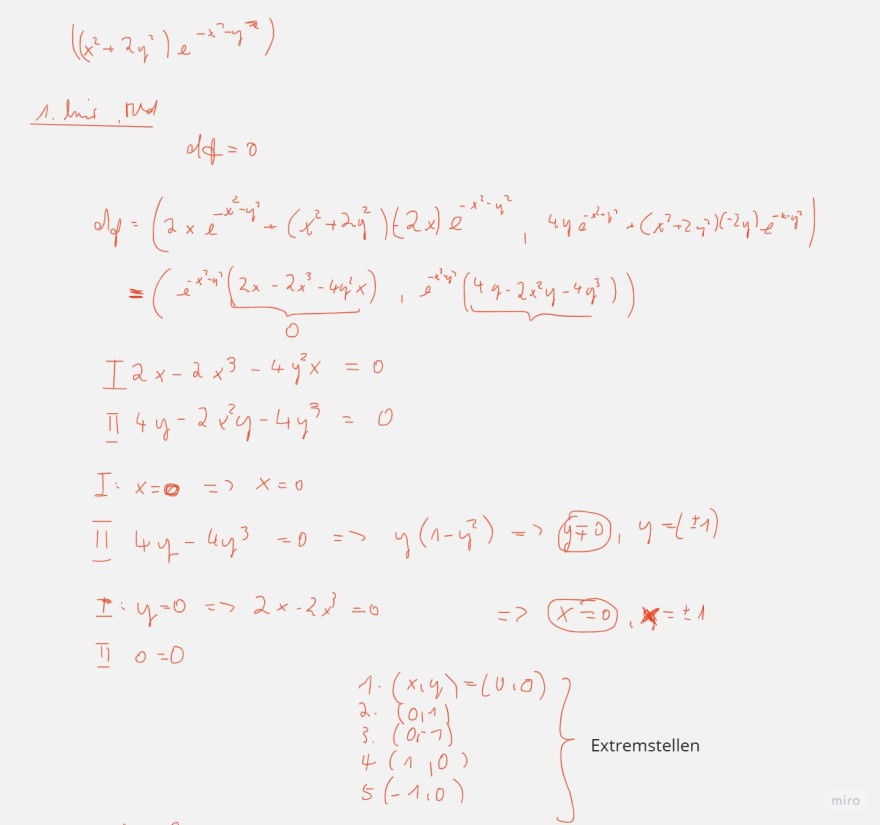 ((x²+2y²)e^{-x²-y²})
1.
df = 0
df = (2x e^{-x²-y²} + (x²+2y²)(-2x) e^{-x²-y²}, 4y e^{-x²-y²} + (x²+2y²)(-2y) e^{-x-y²})
= (e^{-x²-y²}(2x - 2x³ - 4y²x), e^{-x²-y²}(4y - 2x²y - 4y³))
0
I 2x - 2x³ - 4y²x = 0
II 4y - 2x²y - 4y³ = 0
I: x=0 => x=0
II 4y - 4y³ = 0 => y(1-y²) => y=0, y=(±1)
I: y=0 => 2x-2x³=0 => x=0, x=±1
II 0=0
1. (x,y)=(0,0)
2. (0,1)
3. (0,-1)
4 (1,0)
5 (-1,0)
Extremstellen
miro